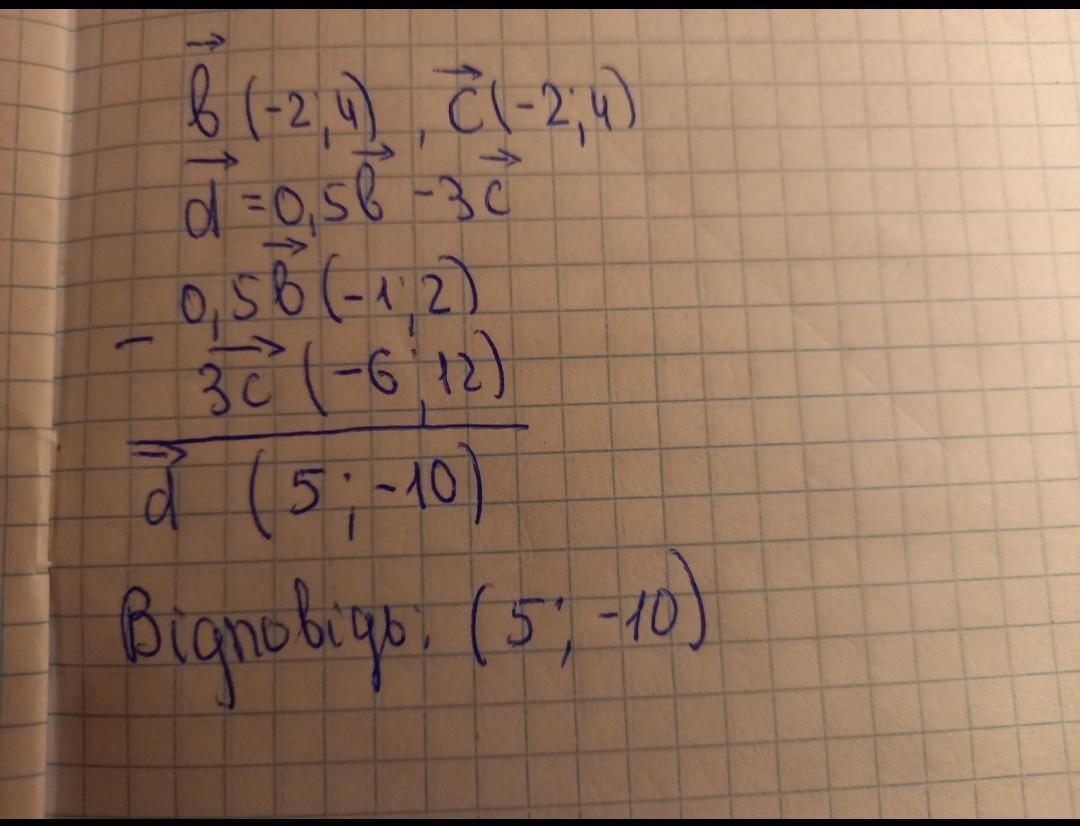 b⃗ (-2;4), c⃗ (-2;4)
d⃗ = 0,5b⃗ - 3c⃗
0,5b⃗ (-1;2)
-
3c⃗ (-6;12)
d⃗ (5;-10)
Відповідь: (5;-10)